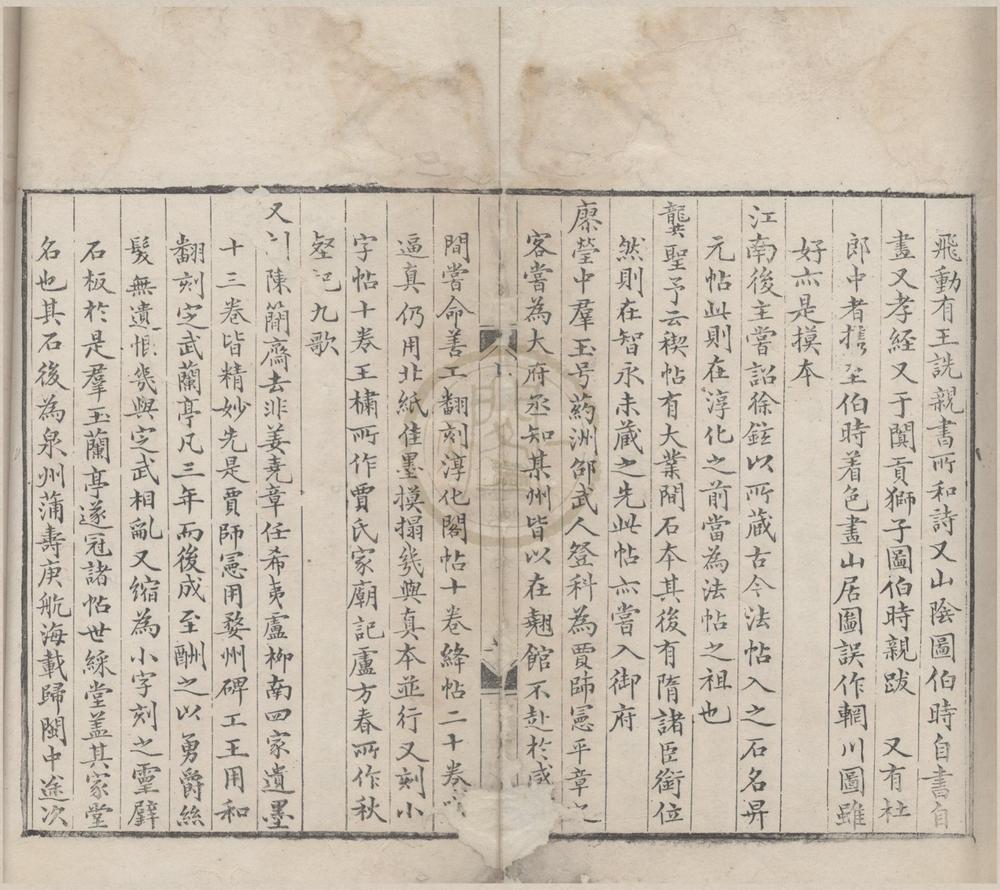 飛動有王詵親書所和詩又山陰圖伯時自書自
畫又孝経又于闐貢獅子圖伯時親跋　又有杜
郎中者擕至伯時着色畫山居圖誤作輞川圖雖
好亦是摸本
江南後主嘗詔徐鉉以所蔵古今法帖入之石名昇
元帖此則在淳化之前當為法帖之祖也
龔聖予云禊帖有大業間石本其後有隋諸臣銜位
然則在智永未蔵之先此帖亦嘗入御府
廖瑩中羣玉号葯洲邵武人登科為賈師憲平章之
客嘗為大府丞知某州皆以在翹館不赴於咸
間嘗命善工翻刻淳化閣帖十卷絳帖二十卷
逼真仍用北紙佳墨摸搨幾與真本並行又刻小
字帖十卷王橚所作賈氏家廟記盧方春所作秋
壑記九歌
又刂陳簡齋去非姜堯章任希夷盧柳南四家遺墨
十三卷皆精妙先是賈師憲用婺州碑工王用和
翻刻㝎武蘭亭凡三年而後成至酬之以勇爵絲
髮無遺恨幾與㝎武相亂又缩為小字刻之靈壁
石板於是羣玉蘭亭遂冠諸帖世綵堂盖其家堂
名也其石後為泉州蒲壽庚航海載歸閩中途次